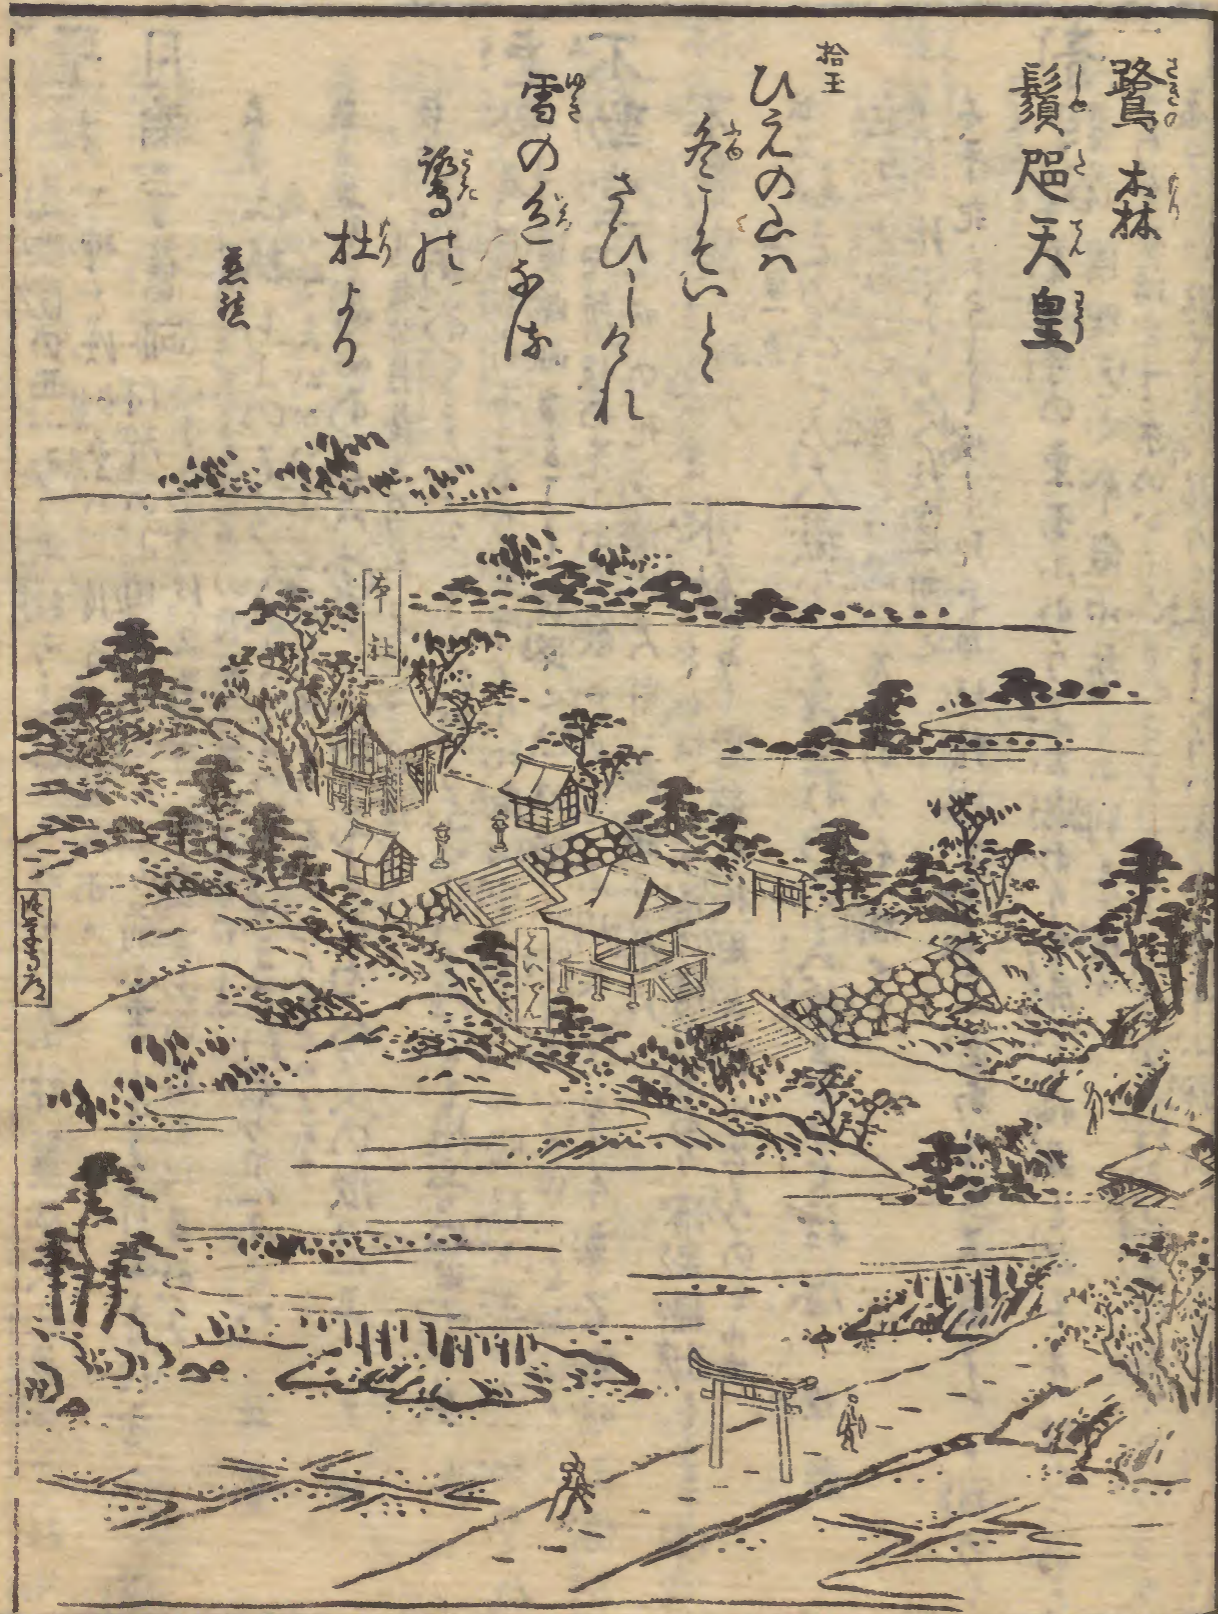 鷺森
鬚咫天皇
拾玉
ひえの山ハ
冬こそいとゝ
さひしけれ
雪の色なる
鷺の
杜より
慈鎮
本社
はいでん